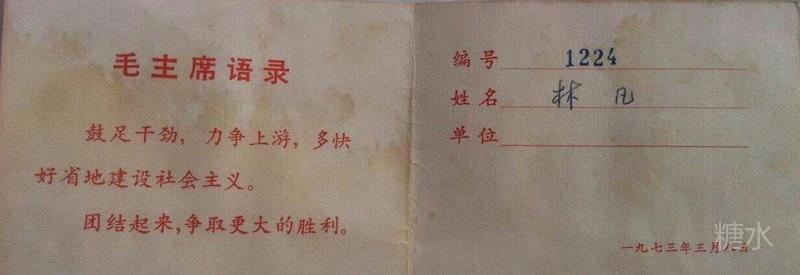 毛主席语录
鼓足干劲,力争上游,多快
好省地建设社会主义。
团结起来,争取更大的胜利。
编号 1224
姓名 林凡
单位
一九七三年三月八日
糖水